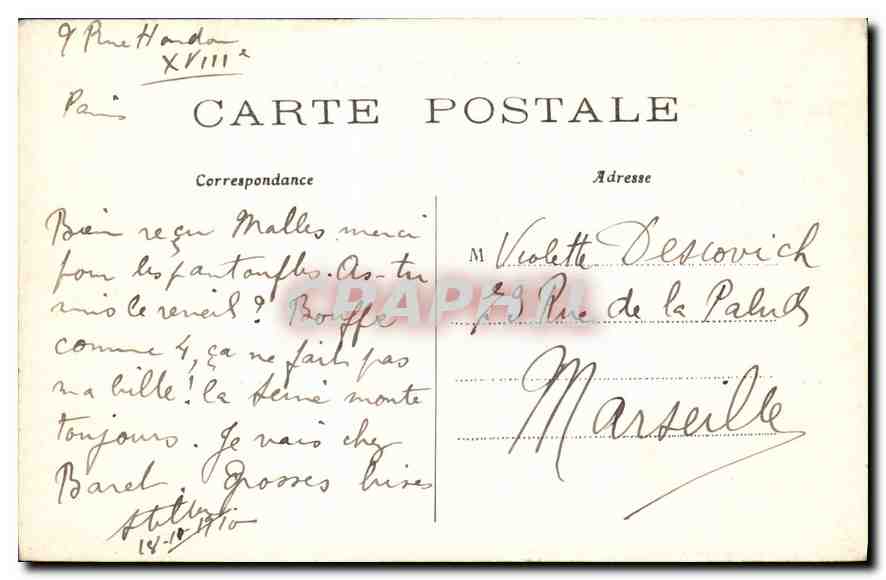 9 Rue Houdon
XVIIIe
Paris
CARTE POSTALE
Correspondance
Adresse
Bien reçu Malles merci
pour les pantoufles. As-tu
mis le reveil? Bouffe
comme 4, ça ne fait pas
ma bille! la Seine monte
toujours. Je vais chez
Baret. Grosses bises
18-10-1910
M Violette Descovich
79 Rue de la Palud
Marseille
CPAPHIL